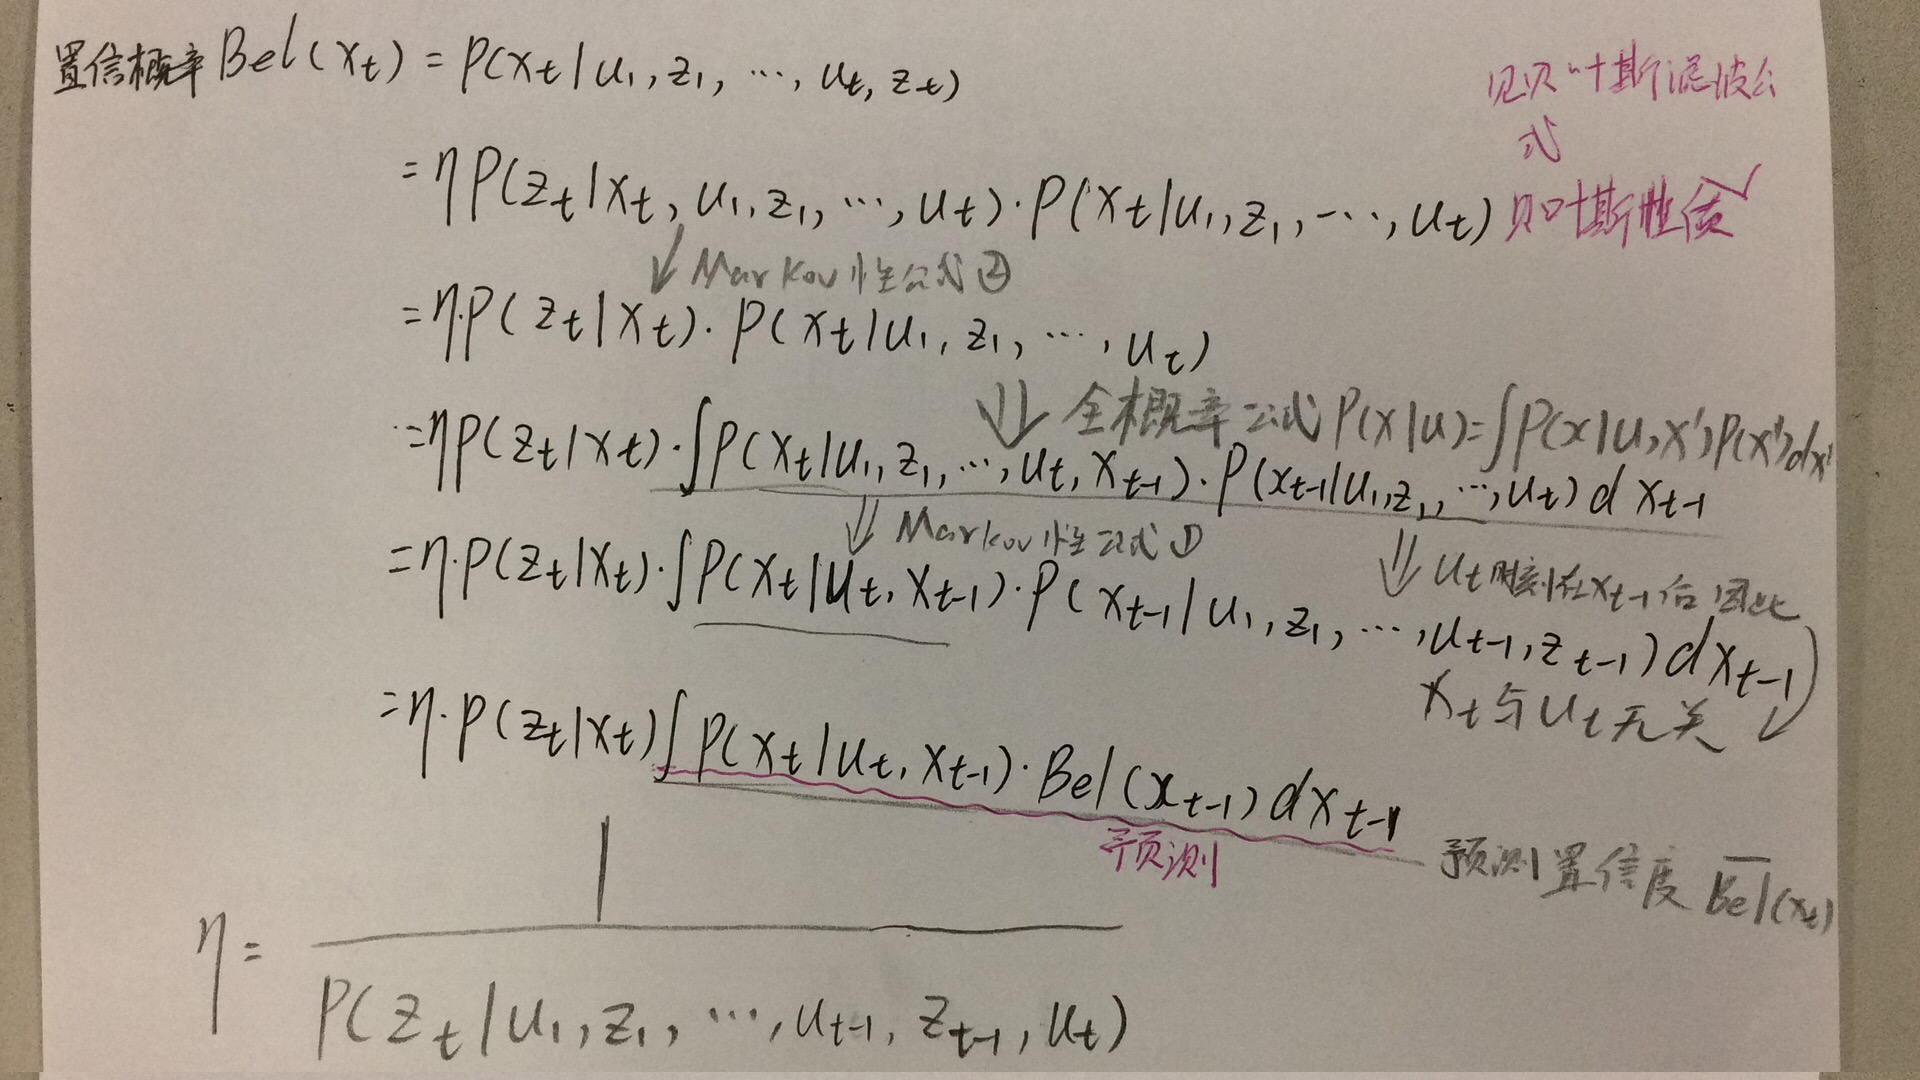 置信概率 Bel(xt) = P(xt|u1, z1, ..., ut, zt)
见贝叶斯滤波公
式
= η P(zt|xt, u1, z1, ..., ut)·P(xt|u1, z1, ..., ut) 贝叶斯性质 ✓
↓ Markov性公式②
= η·P(zt|xt)·P(xt|u1, z1, ..., ut)
⇓ 全概率公式 P(x|u)=∫P(x|u,x')P(x')dx'
= ηP(zt|xt)·∫P(xt|u1, z1, ..., ut, xt-1)·P(xt-1|u1, z1, ..., ut) d xt-1
⇓ Markov性公式①
⇓ ut时刻在xt-1后 因此
= η·P(zt|xt)·∫P(xt|ut, xt-1)·P(xt-1|u1, z1, ..., ut-1, zt-1) dxt-1
xt与ut无关
= η·P(zt|xt)∫P(xt|ut, xt-1)·Bel(xt-1) dxt-1
预测
预测置信度 B̅e̅l̅(xt)
1
η =
P(zt|u1, z1, ..., ut-1, zt-1, ut)